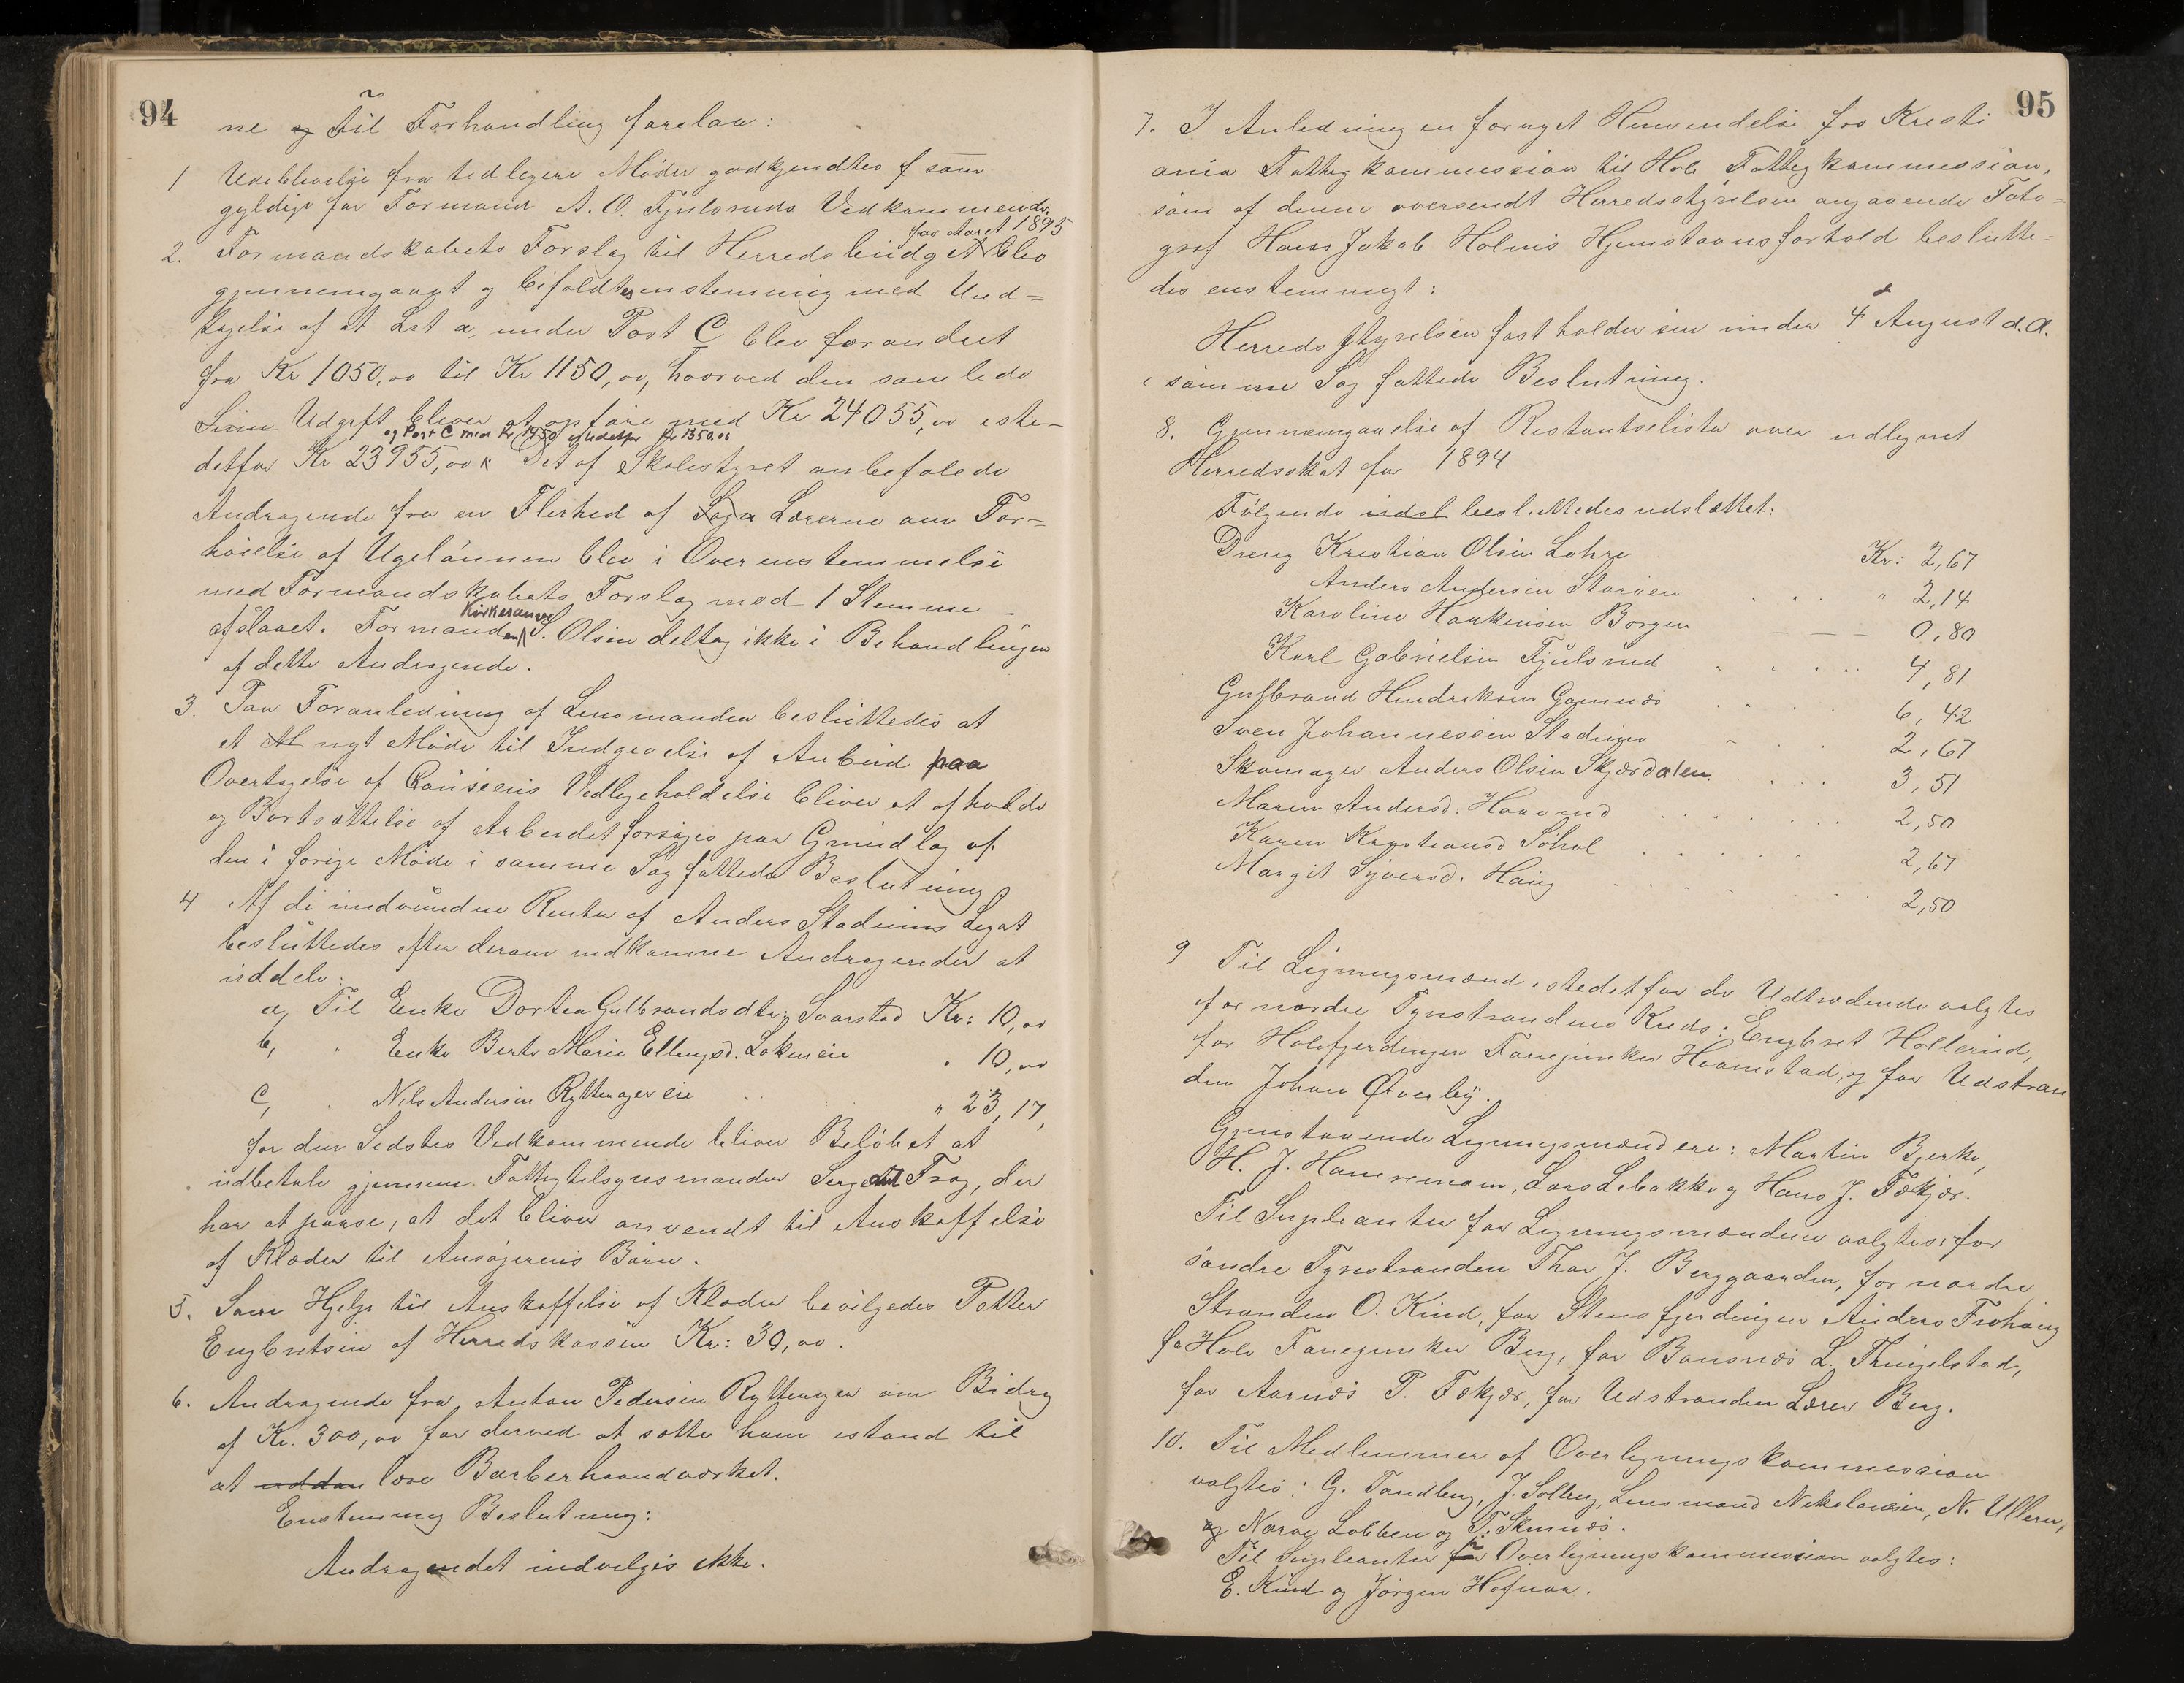 94
ne og Til Forhandling forelaa:
1 Udeblivelse fra tidligere Møder godkjendtes som
gyldige for Formand A. O. Fjulsruds Vedkommende.
for Aaret 1895
2. Formandskabets Forslag til Herredsbudget blev
gjennemgaaet og bifaldtes enstemmig med Und=
tagelse af at Lit a, under Post C blev forandret
fra Kr 1050,00 til Kr 1150,00, hvorved den samlede
Sum Udgift bliver at opføre med Kr 24055,00 iste-
og Post C med Kr 1450 istedetfor Kr 1350.00
detfor Kr 23955,00 Det af Skolestyret anbefalede
Andragende fra en Flerhed af Lærerne om For=
høielse af Ugelønnen blev i Overenstemmelse
med Formandskabets Forslag med 1 Stemme
afslaaet. Formanden Kirkesanger S. Olsen deltog ikke i Behandlingen
af dette Andragende.
3. Paa Foranledning af Lensmanden besluttedes at
et nyt Møde til Indgivelse af Anbud paa
Overtagelse af Vedligeholdelse bliver at afholde
og Bortsættelse af Arbeidet forsøges paa Grundlag af
den i forige Møde i samme Sag fattede Beslutning
4 Af de indvundne Renter af Anders Stadums Legat
besluttedes efter derom indkomne Andragender at
uddele:
a, Til Enke Dortea Gulbrandsdtr. Svarstad Kr: 10,00
b, " Enke Berte Marie Ellingsd. Løkeneie " 10,00
c, " Nils Andersen Rytterager eie " 23,17,
for den Sidstes Vedkommende bliver Beløbet at
udbetale gjennem Fattigtilsynsmanden Sergeant Frog, der
har at paase, at det bliver anvendt til Anskaffelse
af Klæder til Ansøgerens Børn.
5. Som Hjelp til Anskaffelse af Klæder bevilgedes Petter
Engbretsen af Herredskassen Kr: 30,00.
6. Andragende fra Anton Pedersen Rytterager om Bidrag
af Kr. 300,00 for derved at sætte ham istand til
at uddan lære Barberhaandværket.
Enstemmig Beslutning:
Andragendet indvilges ikke.
95
7. I Anledning en fornyet Henvendelse fra Kristi
ania Fattigkommission til Hole Fattigkommission,
som af denne oversendt Herredsstyrelsen angaaende Foto=
graf Hans Jakob Holms Hjemstavnsforhold beslutte=
des enstemmigt:
Herredsstyrelsen fastholder sin under 4 August d.A.
i samme Sag fattede Beslutning.
8. Gjennemgaaelse af Restantseliste over udlignet
Herredsskat for 1894
Følgende udsl besluttedes udslættet:
Dreng Kristian Olsen Lohre Kr: 2,67
Anders Andersen Storøen " 2,14
Karoline Haakensen Borgen 0,80
Karl Gabrielsen Fjulsrud 4,81
Gulbrand Hendriksen Gomnæs 6,42
Sven Johannessen Stadum 2,67
Skomager Anders Olsen Skjærdalen 3,51
Maren Andersd: Haverud 2,50
Karen Kristiansd Søhol 2,67
Margit Syversd. Haug 2,50
9 Til Ligningsmænd istedetfor de Udtrædende valgtes
for nordre Tyristrandens Kreds: Engbret Hollerud,
for Holefjerdingen Fanejunker Hvamstad, og for Udstran
den Johan Øverby.
Gjenstaaende Ligningsmænd ere: Martin Bjerke,
H. J. Hamremoen, Lars Libakke og Hans J. Fekjær.
Til Supleanter for Ligningsmændene valgtes: for
søndre Tyristranden Thor J. Berggaarden, for nordre
Stranden O. Kind, for Stensfjerdingen Anders Frøhaug
for Hole Fanejunker Berg, for Bønsnæs L. Thingelstad,
for Aarnæs P. Fekjær, for Udstranden Lærer Berg.
10. Til Medlemmer af Overligningskommission
valgtes: G. Tandberg, J. Solberg, Lensmand Nikolaisen, N. Ullern,
og Narve Lobben og T. Skinnæs.
Til Supleanter for Overligningskommission valgtes:
E. Kind og Jørgen Hafnor.